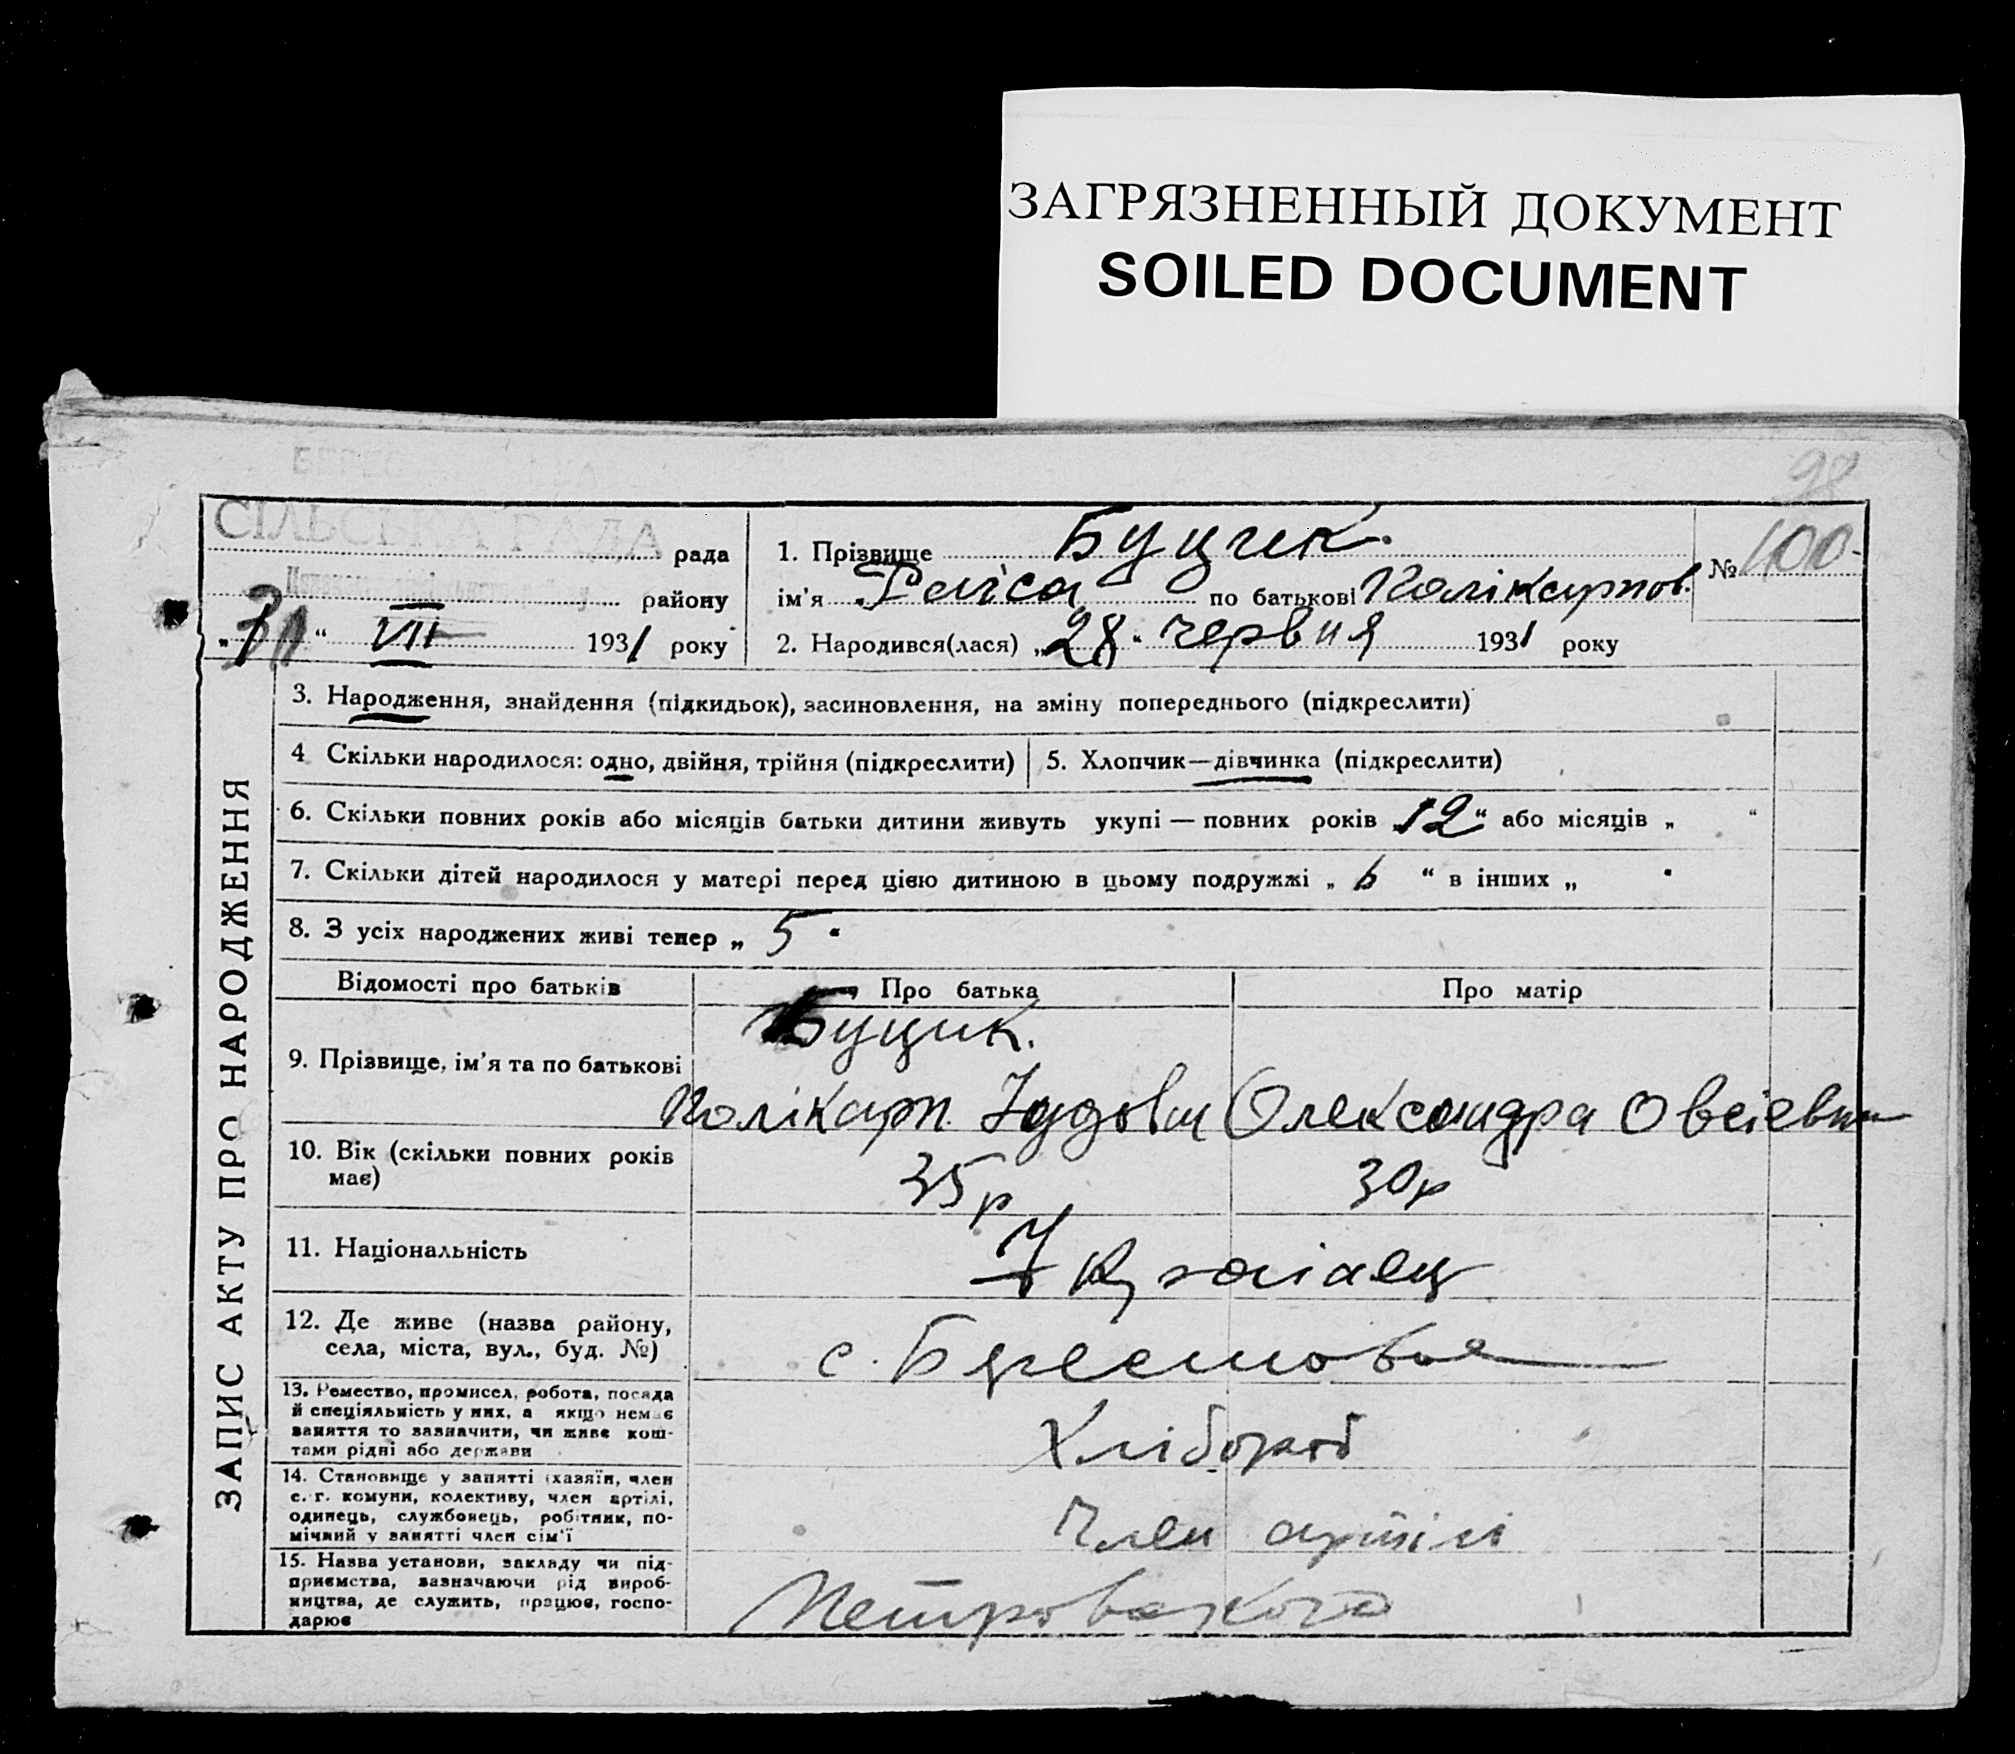 ЗАГРЯЗНЕННЫЙ ДОКУМЕНТ
SOILED DOCUMENT
98
СІЛЬСЬКА РАДА рада
району
VII 1931 року
1. Прізвище Буцик.
№ 100
ім'я Раїса по батькові Полікарпов.
2. Народився(лася) „28" червня 1931 року
ЗАПИС АКТУ ПРО НАРОДЖЕННЯ
3. Народження, знайдення (підкидьок), засиновлення, на зміну попереднього (підкреслити)
4 Скільки народилося: одно, двійня, трійня (підкреслити) 5. Хлопчик—дівчинка (підкреслити)
6. Скільки повних років або місяців батьки дитини живуть укупі — повних років „12" або місяців „ "
7. Скільки дітей народилося у матері перед цією дитиною в цьому подружжі „ 6 " в інших „ "
8. З усіх народжених живі тепер „ 5 "
Відомості про батьків Про батька Про матір
9. Прізвище, ім'я та по батькові Буцик.
Полікарп Олександра Овсіевна
10. Вік (скільки повних років
має) 35 р 30 р
11. Національність
12. Де живе (назва району,
села, міста, вул., буд. №) с.
13. Ремество, промисел, робота, посада
й спеціяльність у них, а якщо немає
заняття то зазначити, чи живе кош-
тами рідні або держави
Хлібороб
14. Становище у занятті (хазяїн, член
с.-г. комуни, колективу, член артілі,
одинець, службовець, робітник, по-
мічний у занятті член сім'ї
Член артілі
15. Назва установи, закладу чи під-
приємства, зазначаючи рід вироб-
ництва, де служить, працює, госпо-
дарює
Петровського